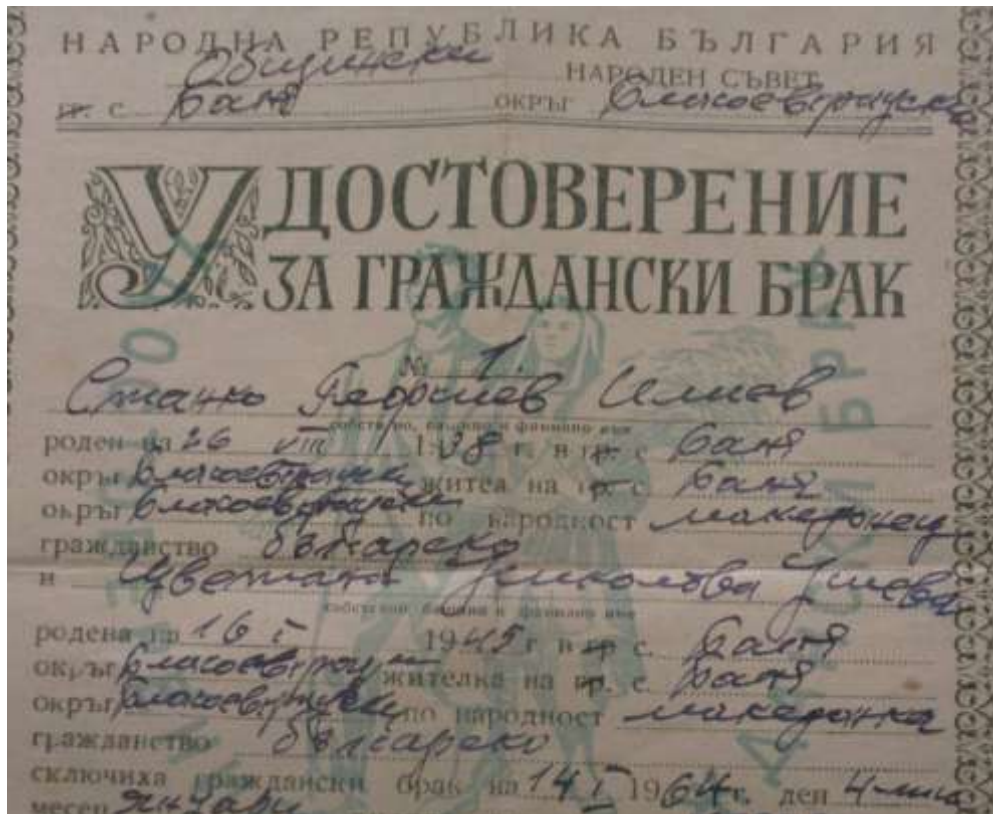 НАРОДНА РЕПУБЛИКА БЪЛГАРИЯ
Общински НАРОДЕН СЪВЕТ
гр. с. Баня ОКРЪГ Благоевградски
УДОСТОВЕРЕНИЕ
ЗА ГРАЖДАНСКИ БРАК
№ 1.
Георгиев Илиев
собствено, бащино и фамилно име
роден на 26 VIII 1938 г. в гр. с. Баня
окръг Благоевградски жител на гр. с. Баня
окръг Благоевградски по народност македонец
гражданство българско
и Цветана Николова
собствено, бащино и фамилно име
родена на 16 I 1945 г. в гр. с. Баня
окръг Благоевградски жителка на гр. с. Баня
окръг Благоевградски по народност македонка
гражданство българско
сключиха граждански брак на 14 I 1964 г. ден
месец Януари